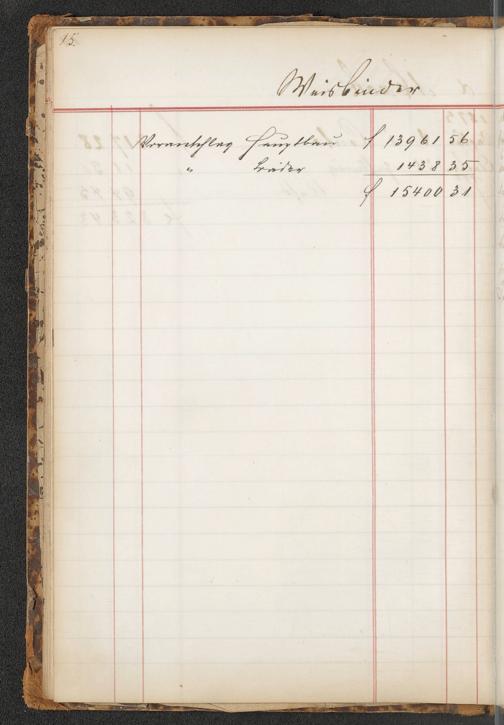 15.
Weisbinder
Voranschlag Hauptbau f 13961 56
" Bäder 1438 35
f 15400 31